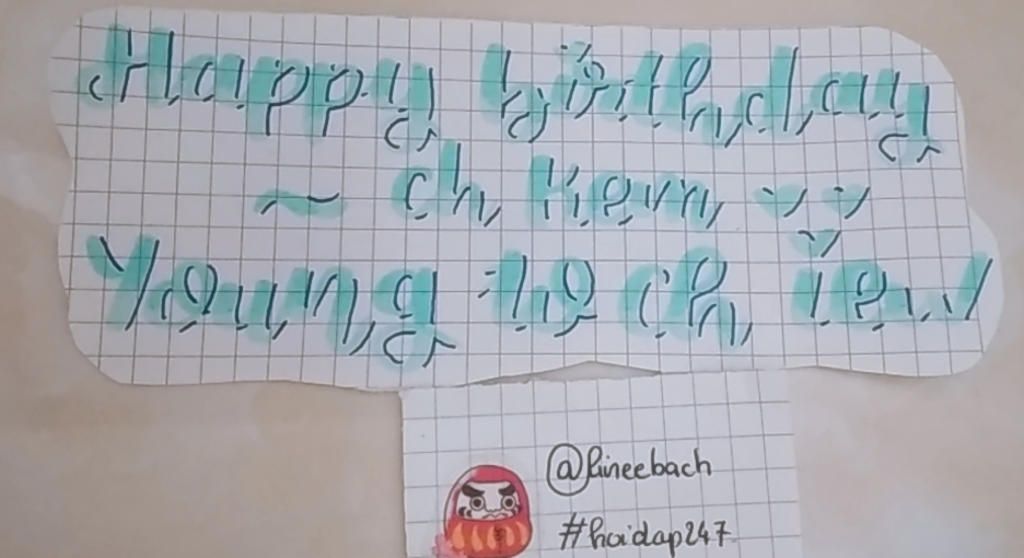 Happy birthday
~ ch Kem
Young to ch iew
@Rineebach
#hoidap247